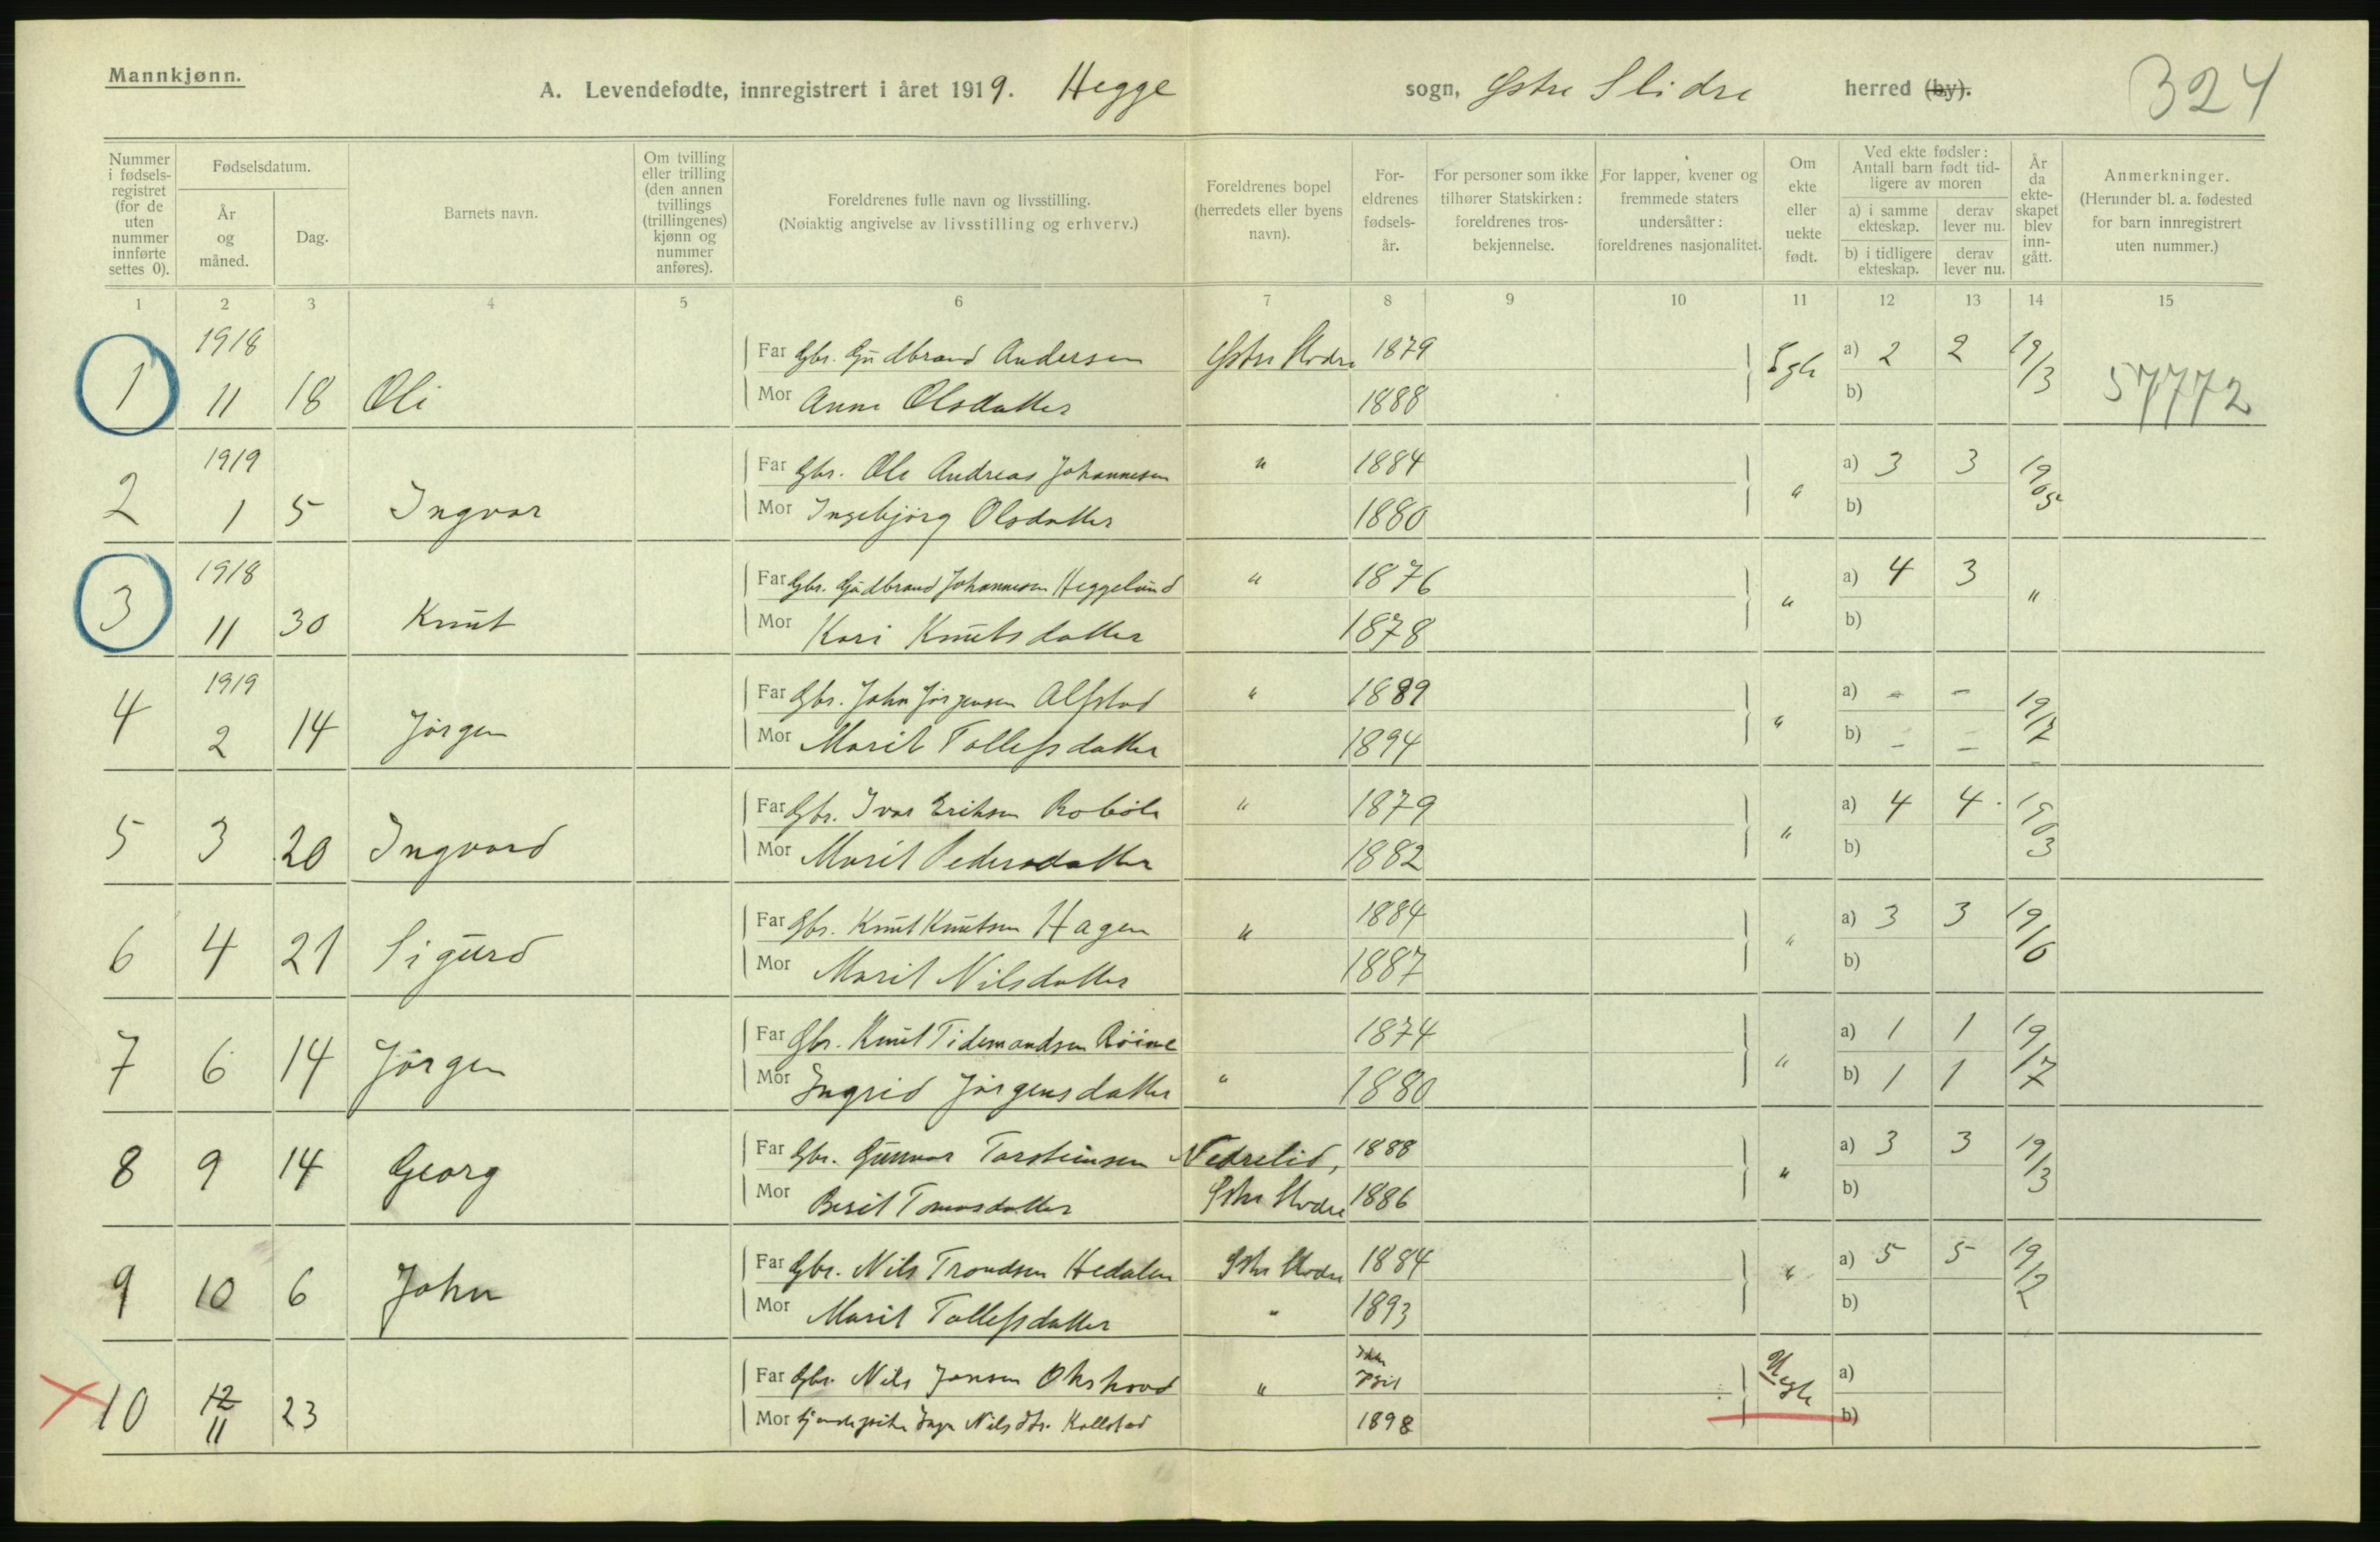 Mannkjønn.
A. Levendefødte, innregistrert i året 1919. Hegge sogn, Østre Slidre herred (by).
324
Nummer i fødsels-registret (for de uten nummer innførte settes 0).
Fødselsdatum.
År og måned.
Dag.
Barnets navn.
Om tvilling eller trilling (den annen tvillings (trillingenes) kjønn og nummer anføres).
Foreldrenes fulle navn og livsstilling.
(Nøiaktig angivelse av livsstilling og erhverv.)
Foreldrenes bopel (herredets eller byens navn).
For-eldrenes fødsels-år.
For personer som ikke tilhører Statskirken: foreldrenes tros-bekjennelse.
For lapper, kvener og fremmede staters undersåtter: foreldrenes nasjonalitet.
Om ekte eller uekte født.
Ved ekte fødsler: Antall barn født tid-ligere av moren
a) i samme ekteskap. derav lever nu.
b) i tidligere ekteskap. derav lever nu.
År da ekte-skapet blev inn-gått.
Anmerkninger.
(Herunder bl. a. fødested for barn innregistrert uten nummer.)
1 2 3 4 5 6 7 8 9 10 11 12 13 14 15
1918
Far Gbr. Gudbrand Andersen Østre Slidre 1879 a) 2 2 19/13
1 11 18 Oli Egte 57772
Mor Anne Olsdatter 1888 b)
1919
Far Gbr. Ole Andreas Johannesen " 1884 a) 3 3 1905
2 1 5 Ingvar "
Mor Ingebjørg Olsdatter 1880 b)
1918
Far Gbr. Gudbrand Johannesen Heggelund " 1876 a) 4 3 "
3 11 30 Knut "
Mor Kari Knutsdatter 1878 b)
1919
Far Gbr. John Jørgensen Alfstad " 1889 a) - - 19/17
4 2 14 Jørgen "
Mor Marit Tollefsdatter 1894 b) - -
Far Gbr. Ivar Eriksen Robøle " 1879 a) 4 4 1903
5 3 20 Ingvard "
Mor Marit Pedersdatter 1882 b)
Far Gbr. Knut Knutsen Hagen " 1884 a) 3 3 19/10
6 4 21 Sigurd "
Mor Marit Nilsdatter 1887 b)
Far Gbr. Knut Tidemandsen Röine 1874 a) 1 1 19/17
7 6 14 Jørgen "
Mor Ingrid Jørgensdatter " 1880 b) 1 1
Far Gbr. Gunnar Torsteinsen Nedrelid, 1888 a) 3 3 19/13
8 9 14 Georg "
Mor Berit Tomasdatter Østre Slidre 1886 b)
Far Gbr. Nils Trondsen Hedalen Østre Slidre 1884 a) 5 5 19/12
9 10 6 John "
Mor Marit Tollefsdatter " 1893 b)
Far Gbr. Nils Jonsen Okshovd " Ikke opgit Uegte a)
10 12 11 23
Mor Nilsdtr. Kollstad 1898 b)